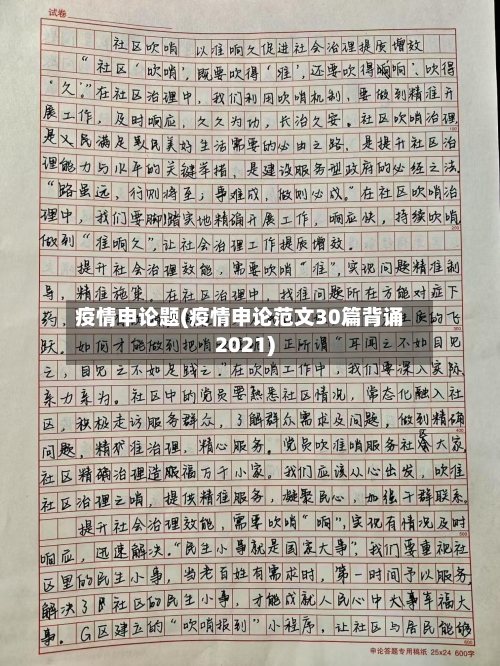 试卷
社区吹哨 以准响久促进社会治理提质增效
“社区‘吹哨’，既要吹得‘准’，还要吹得‘响’、吹得
‘久’。”在社区治理中，我们利用吹哨机制，要做到精准开
展工作，及时响应，久久为功，长治久安。社区吹哨治理，
是人民满足美好生活需要的必由之路，是提升社区治
理能力与水平的关键举措，是建设服务型政府的必经之法。
“路虽远，行则将至；事难成，做则必成。”在社区吹哨治
理中，我们要脚踏实地精确开展工作，响应快，持续吹哨，
做到“准响久”，让社会治理工作提质增效。
提升社会治理效能，需要吹哨“准”，实现问题精准制
导，精准施策。在社区治理中，找准问题所在方能对症下
药，
疫情申论题(疫情申论范文30篇背诵
2021)
的飞
跃。如何才能做到把哨 正所谓“耳闻之不如目见
之，目见之不如足践之。”在吹哨工作中，我们要深入实际，
亲力亲为。社区中的党员要熟悉社区情况，常态化融入社
区，积极走访服务群众，了解群众需求及问题，做到精确
问题，精准治理，精心服务。党员吹准哨服务社会大家，
社区精确治理造服福万千小家。我们应该从心出发，吹准
社区治理之哨，提供精准服务，凝聚民心，加强干群联系。
提升社会治理效能，需要吹哨“响”，实现有情况及时
响应，迅速解决。“民生小事就是国家大事”，我们要重视社
区里的民生小事，当老百姓有需求时，第一时间予以服务，
解决了社区的民生小事，才能成就人民心中大事幸福大
事。G区建立的“吹哨报到”小程序，让社区与居民能够
申论答题专用稿纸 25x24 600字